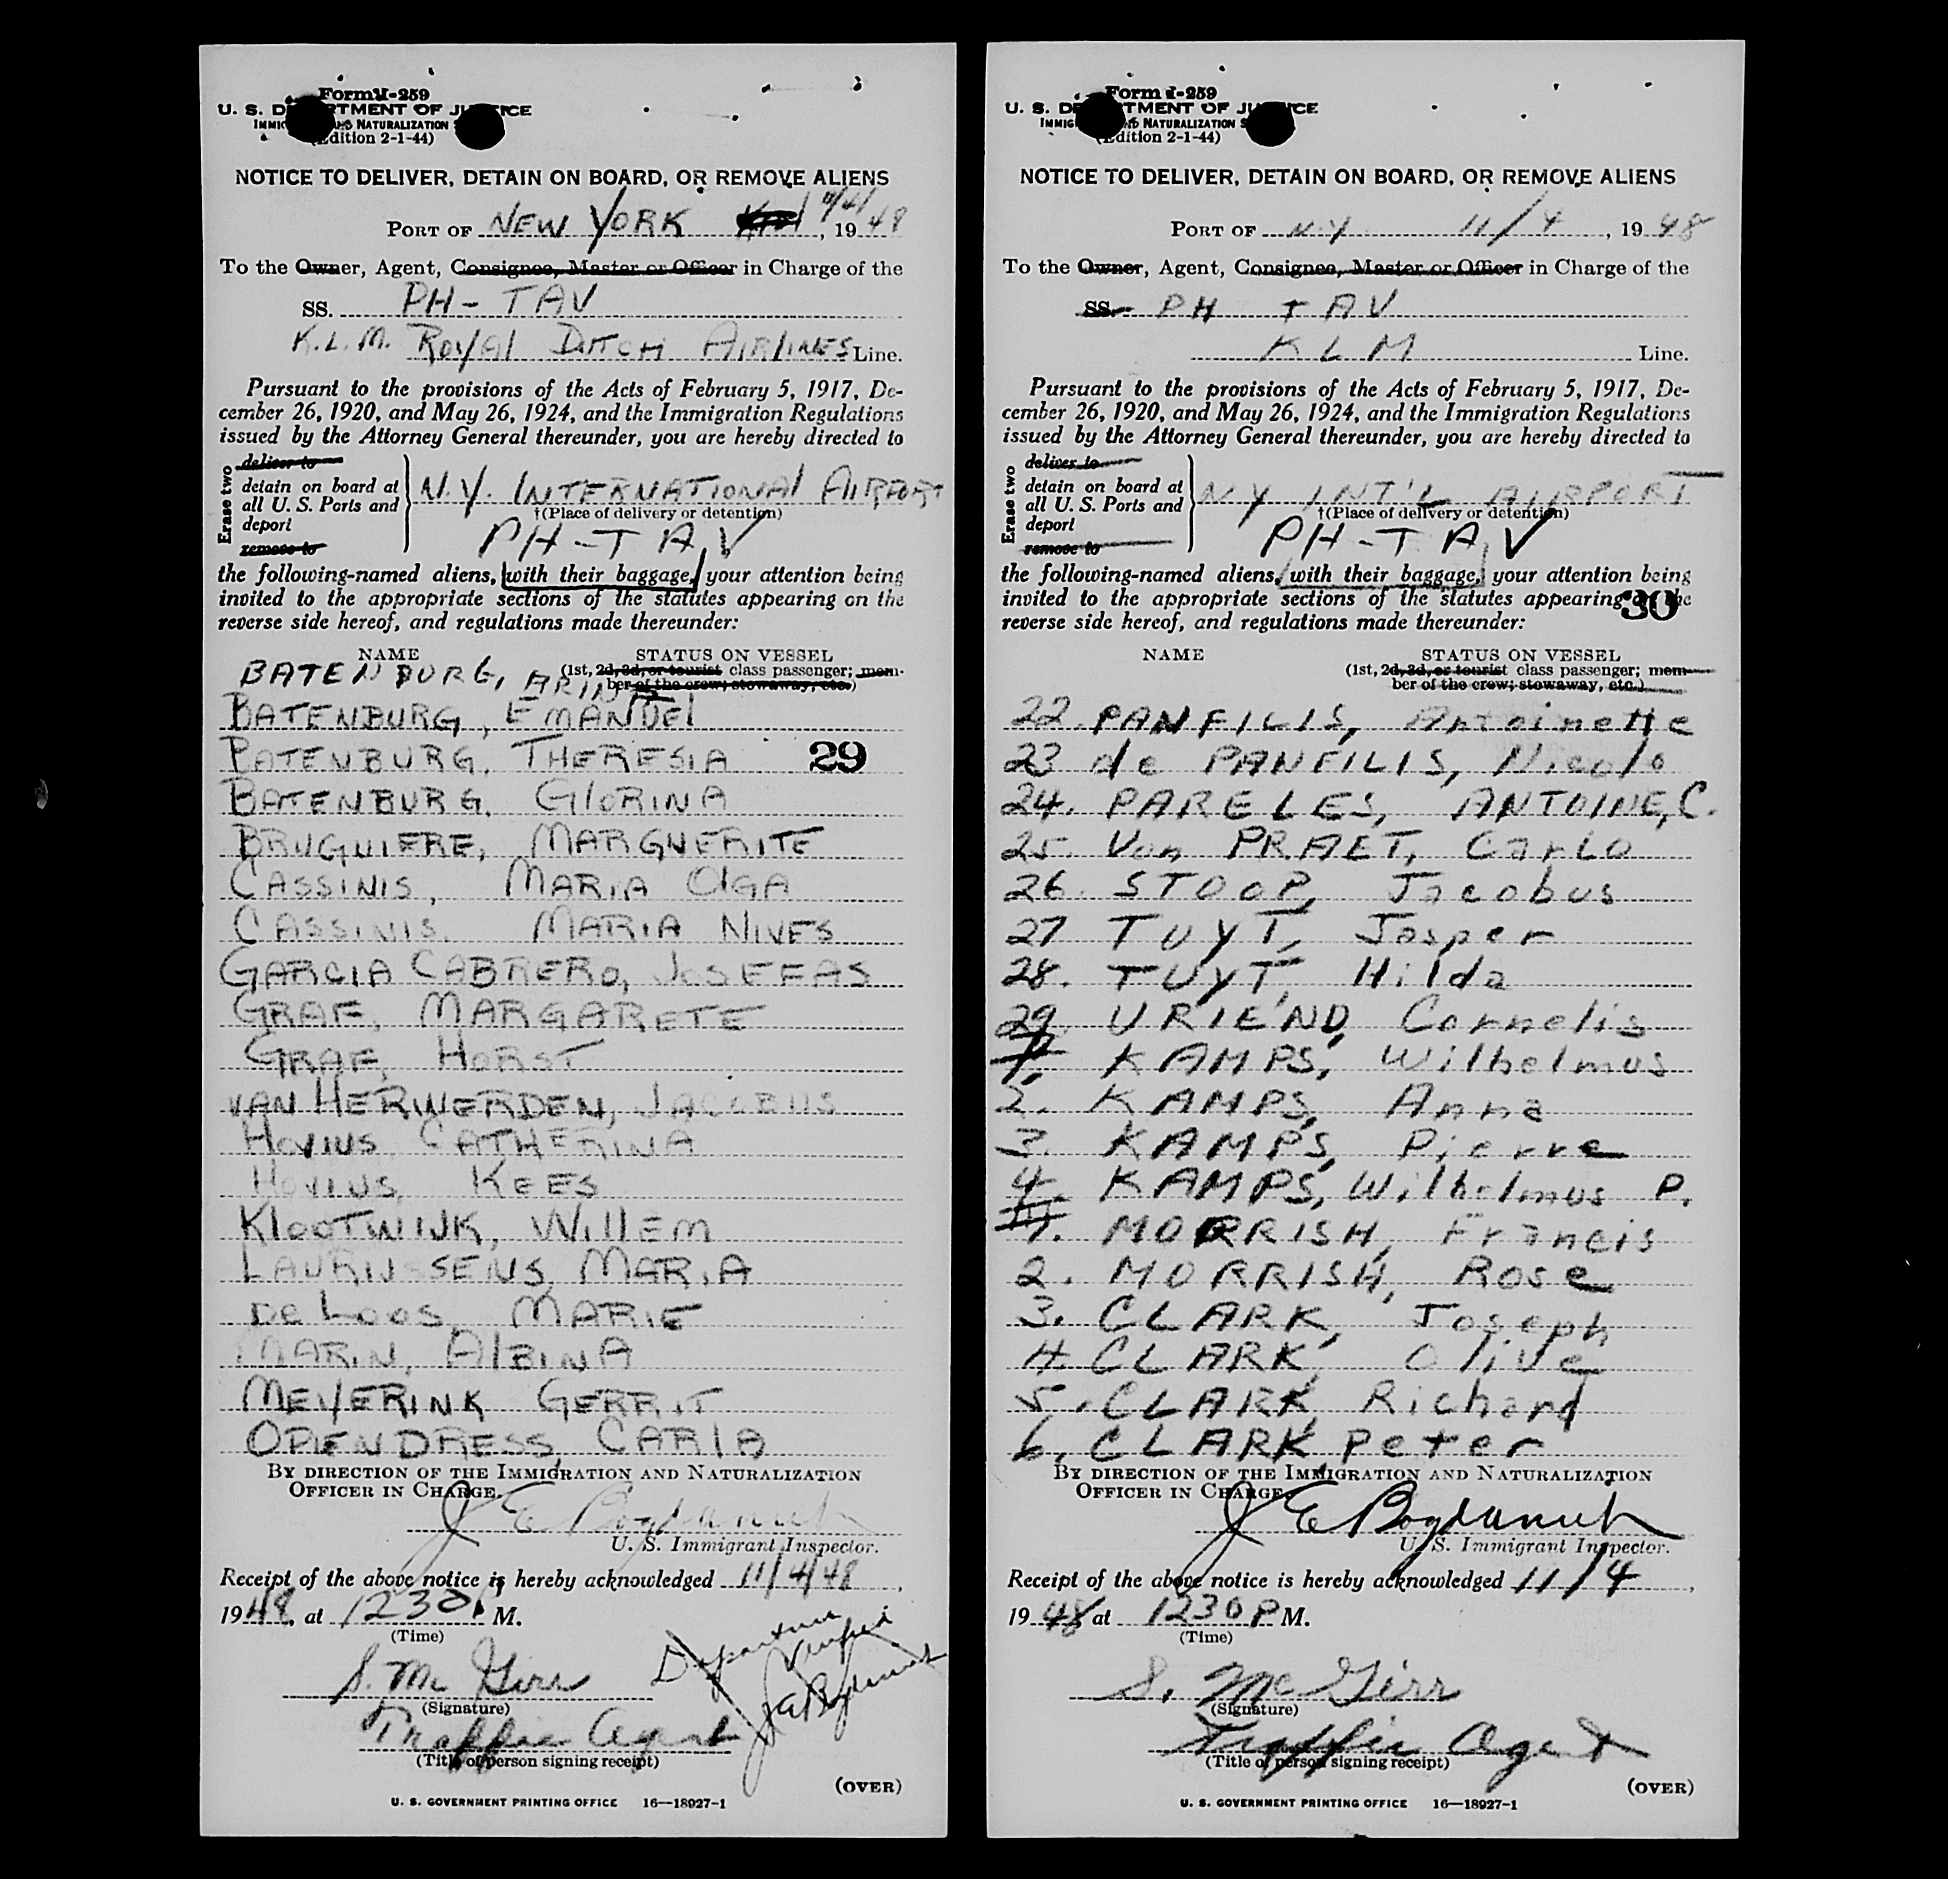 Form I-259
U. S. DEPARTMENT OF JUSTICE
IMMIGRATION AND NATURALIZATION S
(Edition 2-1-44)
NOTICE TO DELIVER, DETAIN ON BOARD, OR REMOVE ALIENS
PORT OF NEW YORK 11/4/, 1948
To the Owner, Agent, Consignee, Master or Officer in Charge of the
SS. PH-TAV
K.L.M. ROYAL DUTCH AIRLINES Line.
Pursuant to the provisions of the Acts of February 5, 1917, De-
cember 26, 1920, and May 26, 1924, and the Immigration Regulations
issued by the Attorney General thereunder, you are hereby directed to
Erase two
deliver to
detain on board at
all U. S. Ports and
deport
remove to
N.Y. INTERNATIONAL AIRPORT
†(Place of delivery or detention)
PH-TAV
the following-named aliens, with their baggage, your attention being
invited to the appropriate sections of the statutes appearing on the
reverse side hereof, and regulations made thereunder:
NAME STATUS ON VESSEL
(1st, 2d, 3d, or tourist class passenger; mem-
ber of the crew; stowaway, etc.)
BATENBURG, ARINUS
BATENBURG, EMANUEL
BATENBURG, THERESIA 29
BATENBURG, GLORINA
BRUGUIERE, MARGUERITE
CASSINIS, MARIA OLGA
CASSINIS, MARIA NIVES
GARCIA CABRERO, JOSEFAS
GRAF, MARGARETE
GRAF, HORST
VAN HERWERDEN, JACOBUS
HOVIUS, CATHERINA
HOVIUS, KEES
KLOOTWIJK, WILLEM
LAURIJSSENS, MARIA
DE LOOS, MARIE
MARIN, ALBINA
MEYERINK GERRIT
OPIENDRESS, CARLA
BY DIRECTION OF THE IMMIGRATION AND NATURALIZATION
OFFICER IN CHARGE.
J E Bogdanich
U. S. Immigrant Inspector.
Receipt of the above notice is hereby acknowledged 11/4/48,
1948, at 1230P M.
(Time)
Departure
Verified
S. McGirr
(Signature)
Traffic Agent
(Title of person signing receipt)
(OVER)
U. S. GOVERNMENT PRINTING OFFICE 16—18927-1
Form I-259
U. S. DEPARTMENT OF JUSTICE
IMMIGRATION AND NATURALIZATION S
(Edition 2-1-44)
NOTICE TO DELIVER, DETAIN ON BOARD, OR REMOVE ALIENS
PORT OF N.Y 11/4, 1948
To the Owner, Agent, Consignee, Master or Officer in Charge of the
SS. PH TAV
KLM Line.
Pursuant to the provisions of the Acts of February 5, 1917, De-
cember 26, 1920, and May 26, 1924, and the Immigration Regulations
issued by the Attorney General thereunder, you are hereby directed to
Erase two
deliver to
detain on board at
all U. S. Ports and
deport
remove to
NY INT'L AIRPORT
†(Place of delivery or detention)
PH-TAV
the following-named aliens, with their baggage, your attention being
invited to the appropriate sections of the statutes appearing on the
30
reverse side hereof, and regulations made thereunder:
NAME STATUS ON VESSEL
(1st, 2d, 3d, or tourist class passenger; mem-
ber of the crew; stowaway, etc.)
22. PANFILIS, Antoinette
23 de PANFILIS, Nicolo
24. PARELES, ANTOINE, C.
25. Van PRAET, Carlo
26. STOOP, Jacobus
27 TUYT, Jasper
28. TUYT, Hilda
29. URIEND, Cornelis
1. KAMPS, Wilhelmus
2. KAMPS, Anna
3. KAMPS, Pierre
4. KAMPS, Wilhelmus P.
1. MORRISH, Francis
2. MORRISH, Rose
3. CLARK, Joseph
4 CLARK, Olive
5. CLARK, Richard
6. CLARK, Peter
BY DIRECTION OF THE IMMIGRATION AND NATURALIZATION
OFFICER IN CHARGE.
J E Bogdanich
U. S. Immigrant Inspector.
Receipt of the above notice is hereby acknowledged 11/4,
1948, at 1230P M.
(Time)
S. McGirr
(Signature)
Traffic Agent
(Title of person signing receipt)
(OVER)
U. S. GOVERNMENT PRINTING OFFICE 16—18927-1